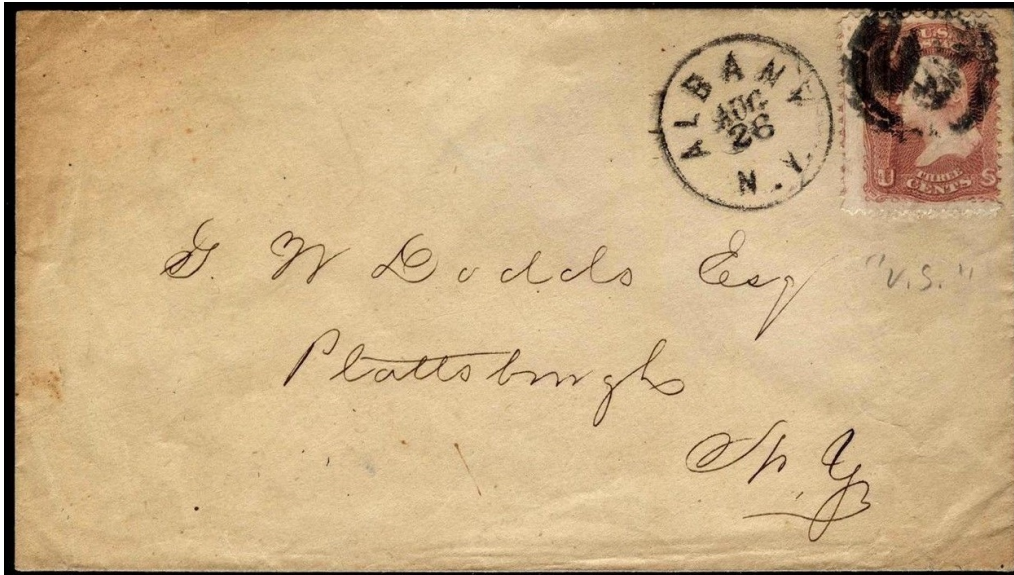 ALBANY
AUG
26
N.Y.
U.S.
U THREE S
CENTS
G. W Dodds Esq
"U.S."
Plattsburgh
N. Y